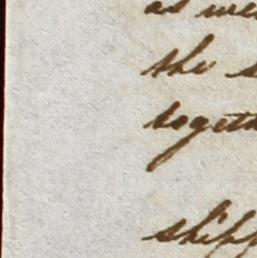 as we
the s
togeth
shipp